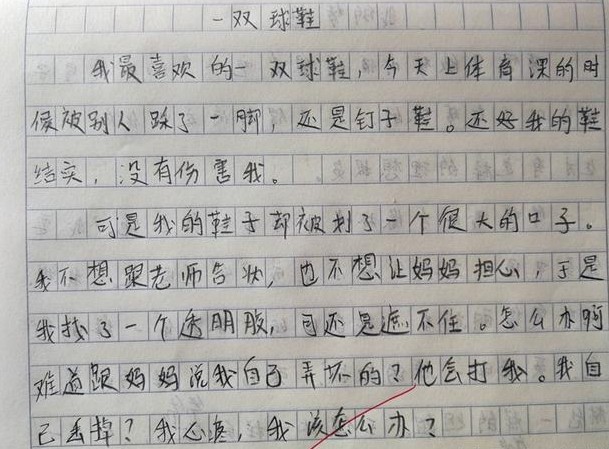 一双球鞋
我最喜欢的一双球鞋，今天上体育课的时
候被别人踩了一脚，还是钉子鞋。还好我的鞋
结实，没有伤害我。
可是我的鞋子却被划了一个很大的口子。
我不想跟老师告状，也不想让妈妈担心，于是
我找了一个透明胶，可还是遮不住。怎么办啊
难道跟妈妈说我自己弄坏的？他会打我。我自
己丢掉？我心疼，我该怎么办？